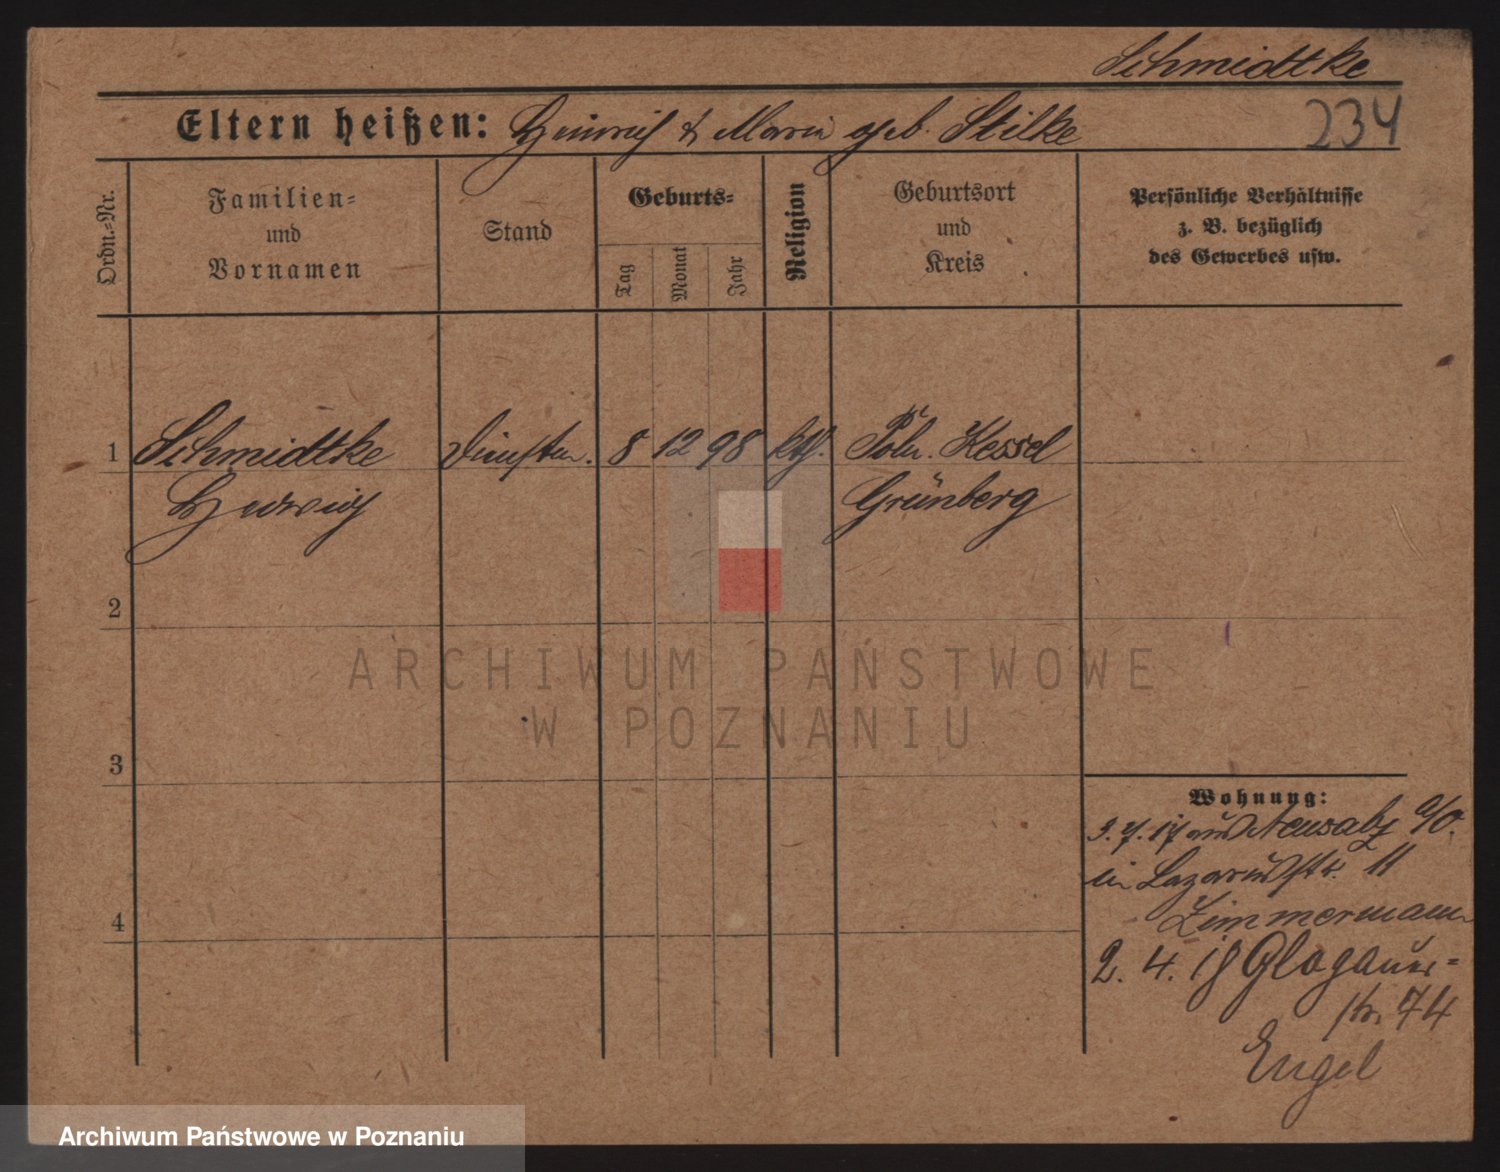 Schmidtke
234
Eltern heißen: Heinrich & Maria geb. Stilke
Ordn.-Nr.
Familien- und Vornamen
Stand
Geburts-
Tag
Monat
Jahr
Religion
Geburtsort und Kreis
Persönliche Verhältnisse
z. B. bezüglich
des Gewerbes usw.
1 Schmidtke 8 12 98 kth. Poln. Kessel
Hedwig Grünberg
2
3
4
Wohnung:
3. 7. 17 aus Neusalz a/O.
in Lazarusstr. 11
Zimmermann
2. 4. 18 Glogauer-
str. 74
Engel
ARCHIWUM PAŃSTWOWE
W POZNANIU
Archiwum Państwowe w Poznaniu